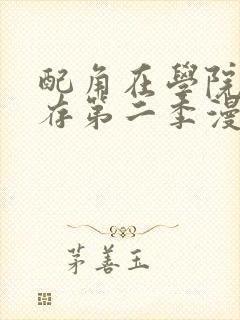 配角在學院生
存第二季漫
茅善玉